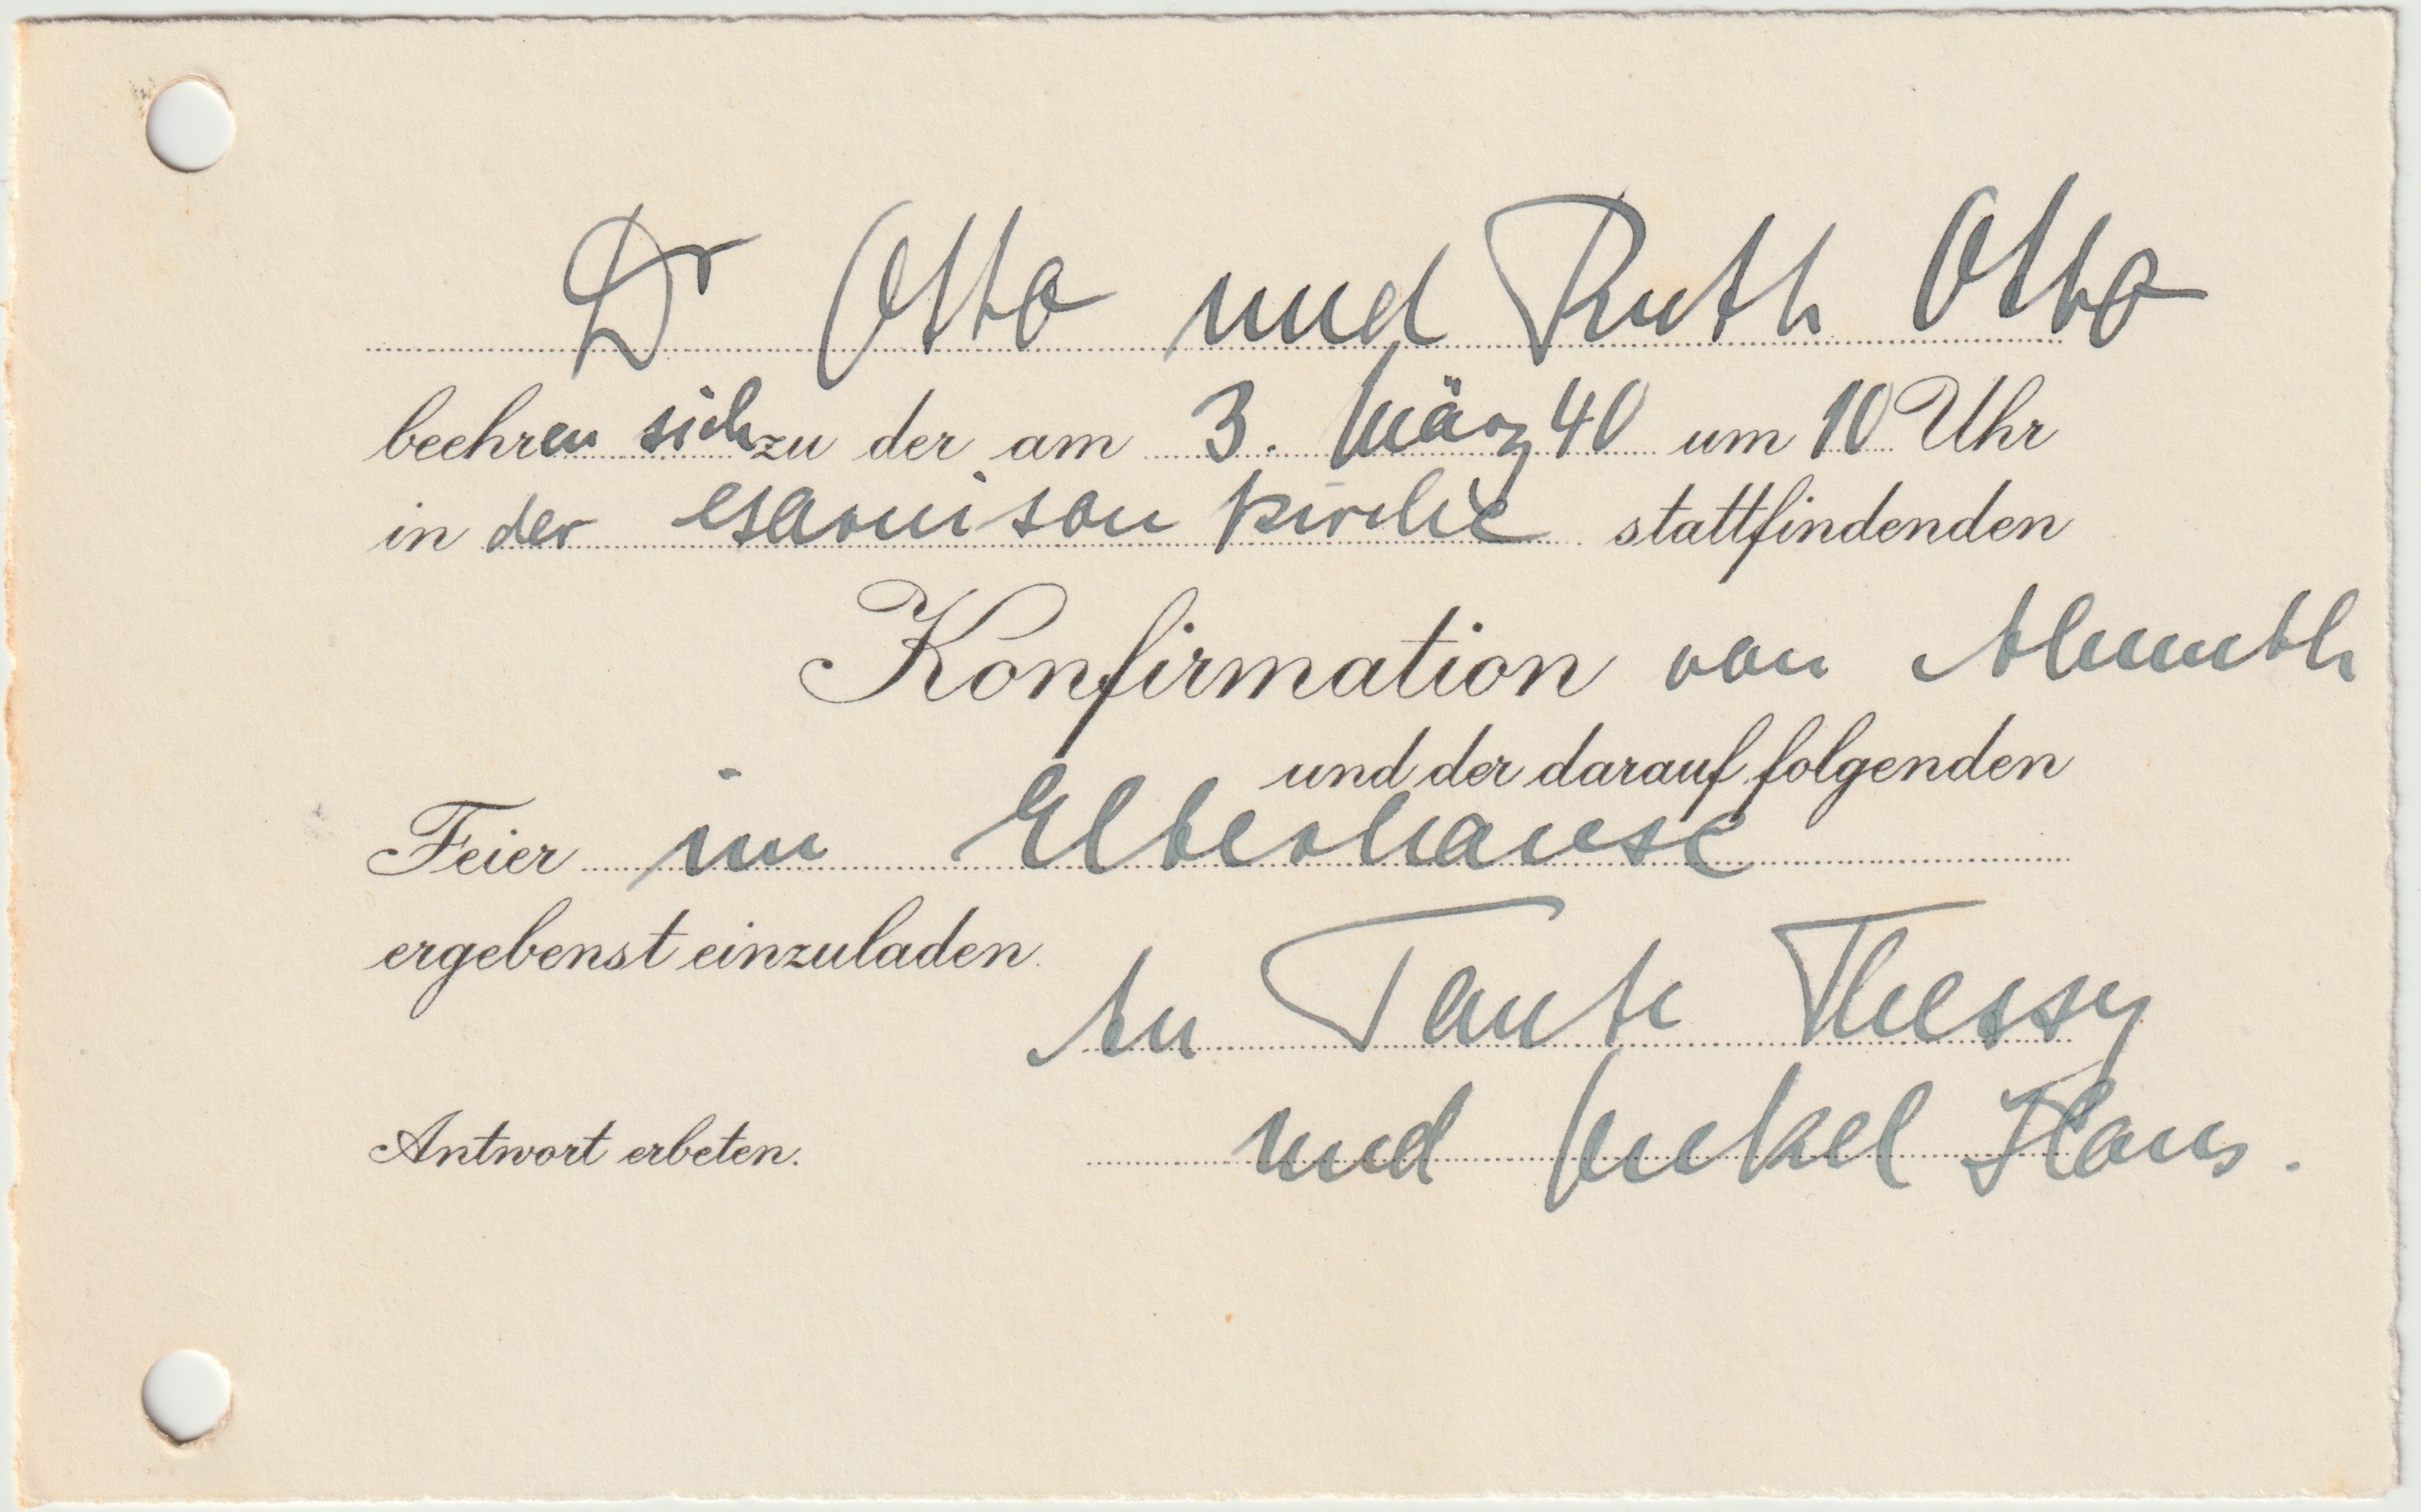 Dr Otto und Ruth Otto
beehren sich zu der am 3. März 40 um 10 Uhr
in der Garnison Kirche stattfindenden
Konfirmation von Almuth
und der darauf folgenden
Feier im Elternhause
ergebenst einzuladen.
An Tante Thessy
Antwort erbeten. und Onkel Hans.